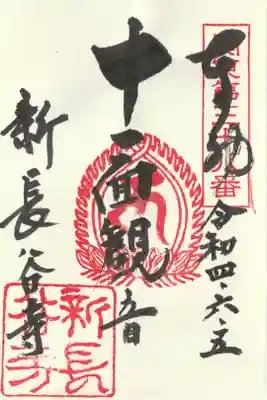 奉拝
令和四・六・五
十一面観音
新長谷寺
新長谷寺